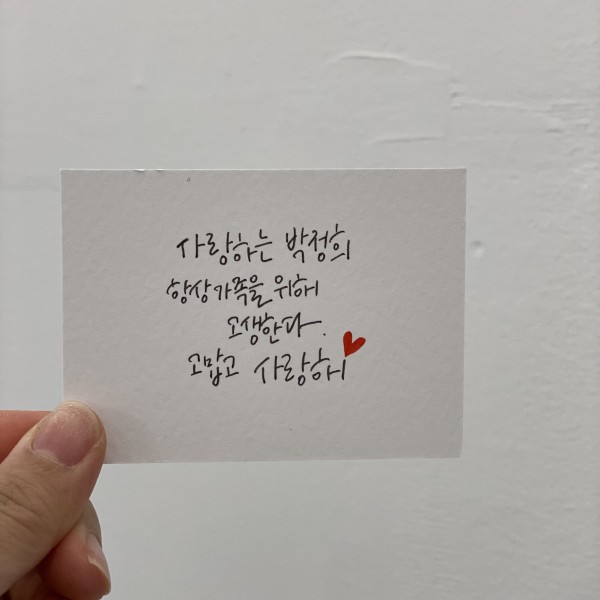 사랑하는 박정희
항상 가족을 위해
고생한다.
고맙고 사랑해